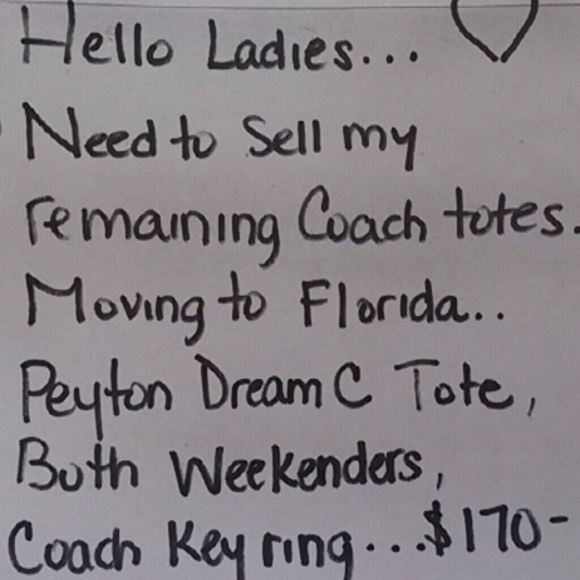 Hello Ladies...
Need to Sell my
remaining Coach totes.
Moving to Florida..
Peyton Dream C Tote,
Both Weekenders,
Coach Key ring...$170-